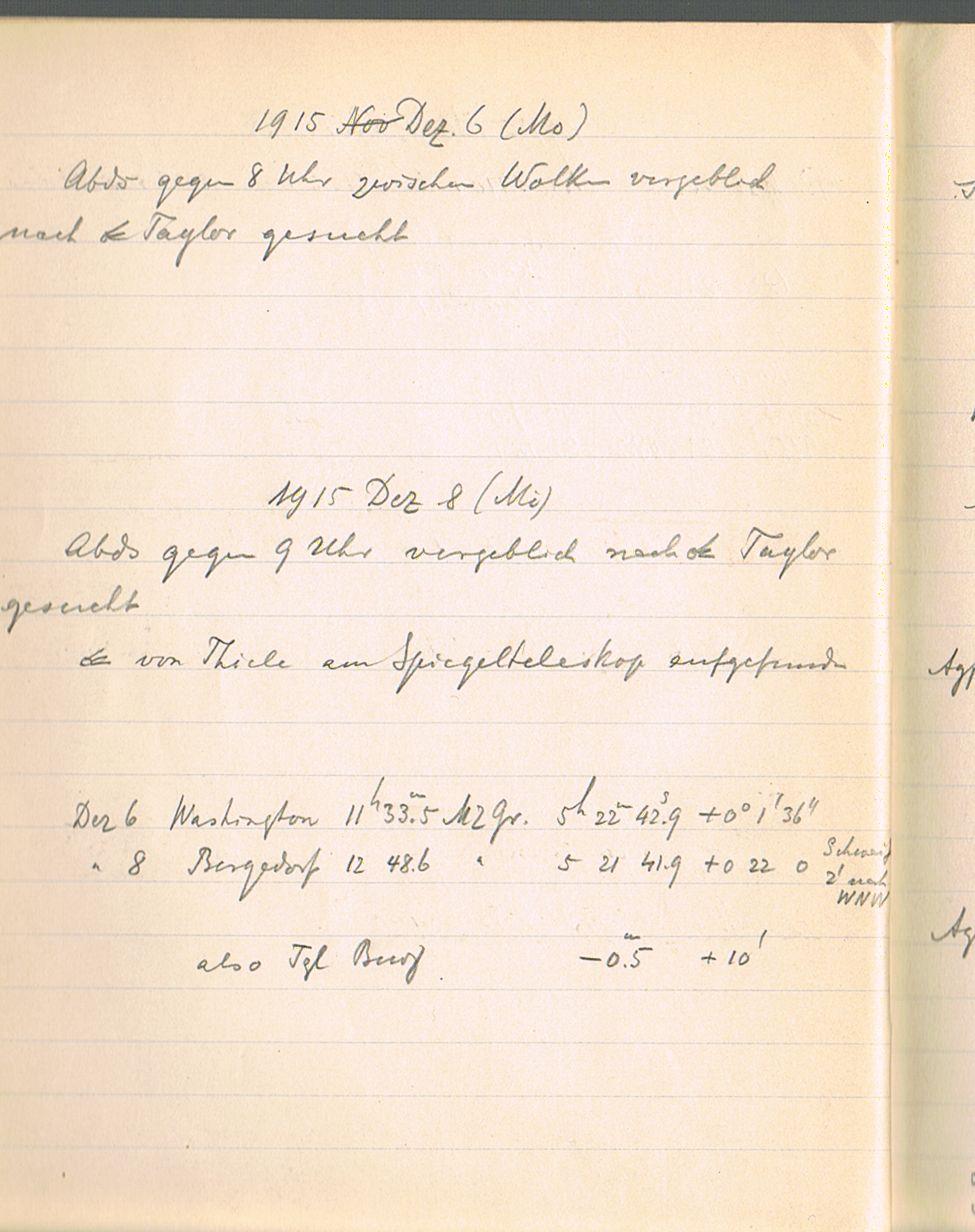 1915 Nov Dez. 6 (Mo)
Abds gegen 8 Uhr zwischen Wolken vergeblich
nach ☄ Taylor gesucht
1915 Dez 8 (Mi)
Abds gegen 9 Uhr vergeblich nach ☄ Taylor
gesucht
☄ von Thiele am Spiegelteleskop aufgefunden
Dez 6 Washington 11ʰ33ᵐ.5 MZGr. 5ʰ 22ᵐ 42ˢ.9 +0° 1' 36"
" 8 Bergedorf 12 48.6 " 5 21 41.9 +0 22 0 Schweif
2' nach
WNW
also Tgl Bewg −0ᵐ.5 +10'